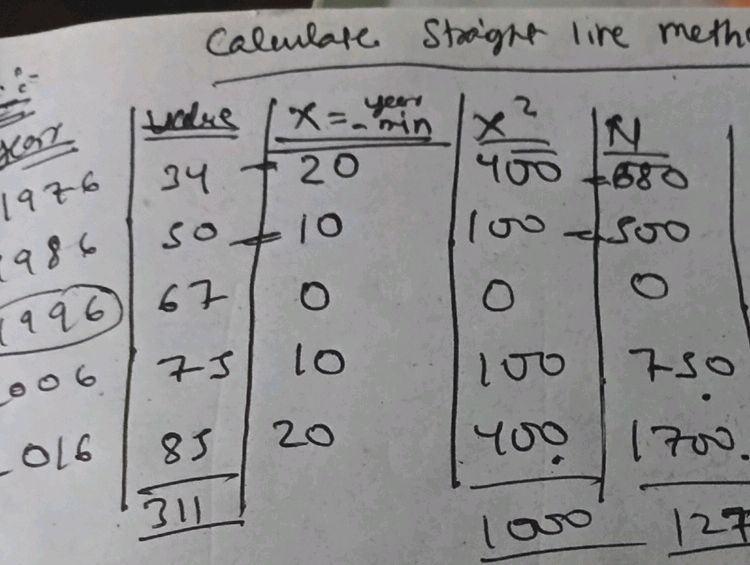 Calculate Straight line metho
year value X = year - min X² N
1976 34 - 20 400 - 680
1986 50 - 10 100 - 500
1996 67 0 0 0
006 75 10 100 750
016 85 20 400 1700
311 1000 127